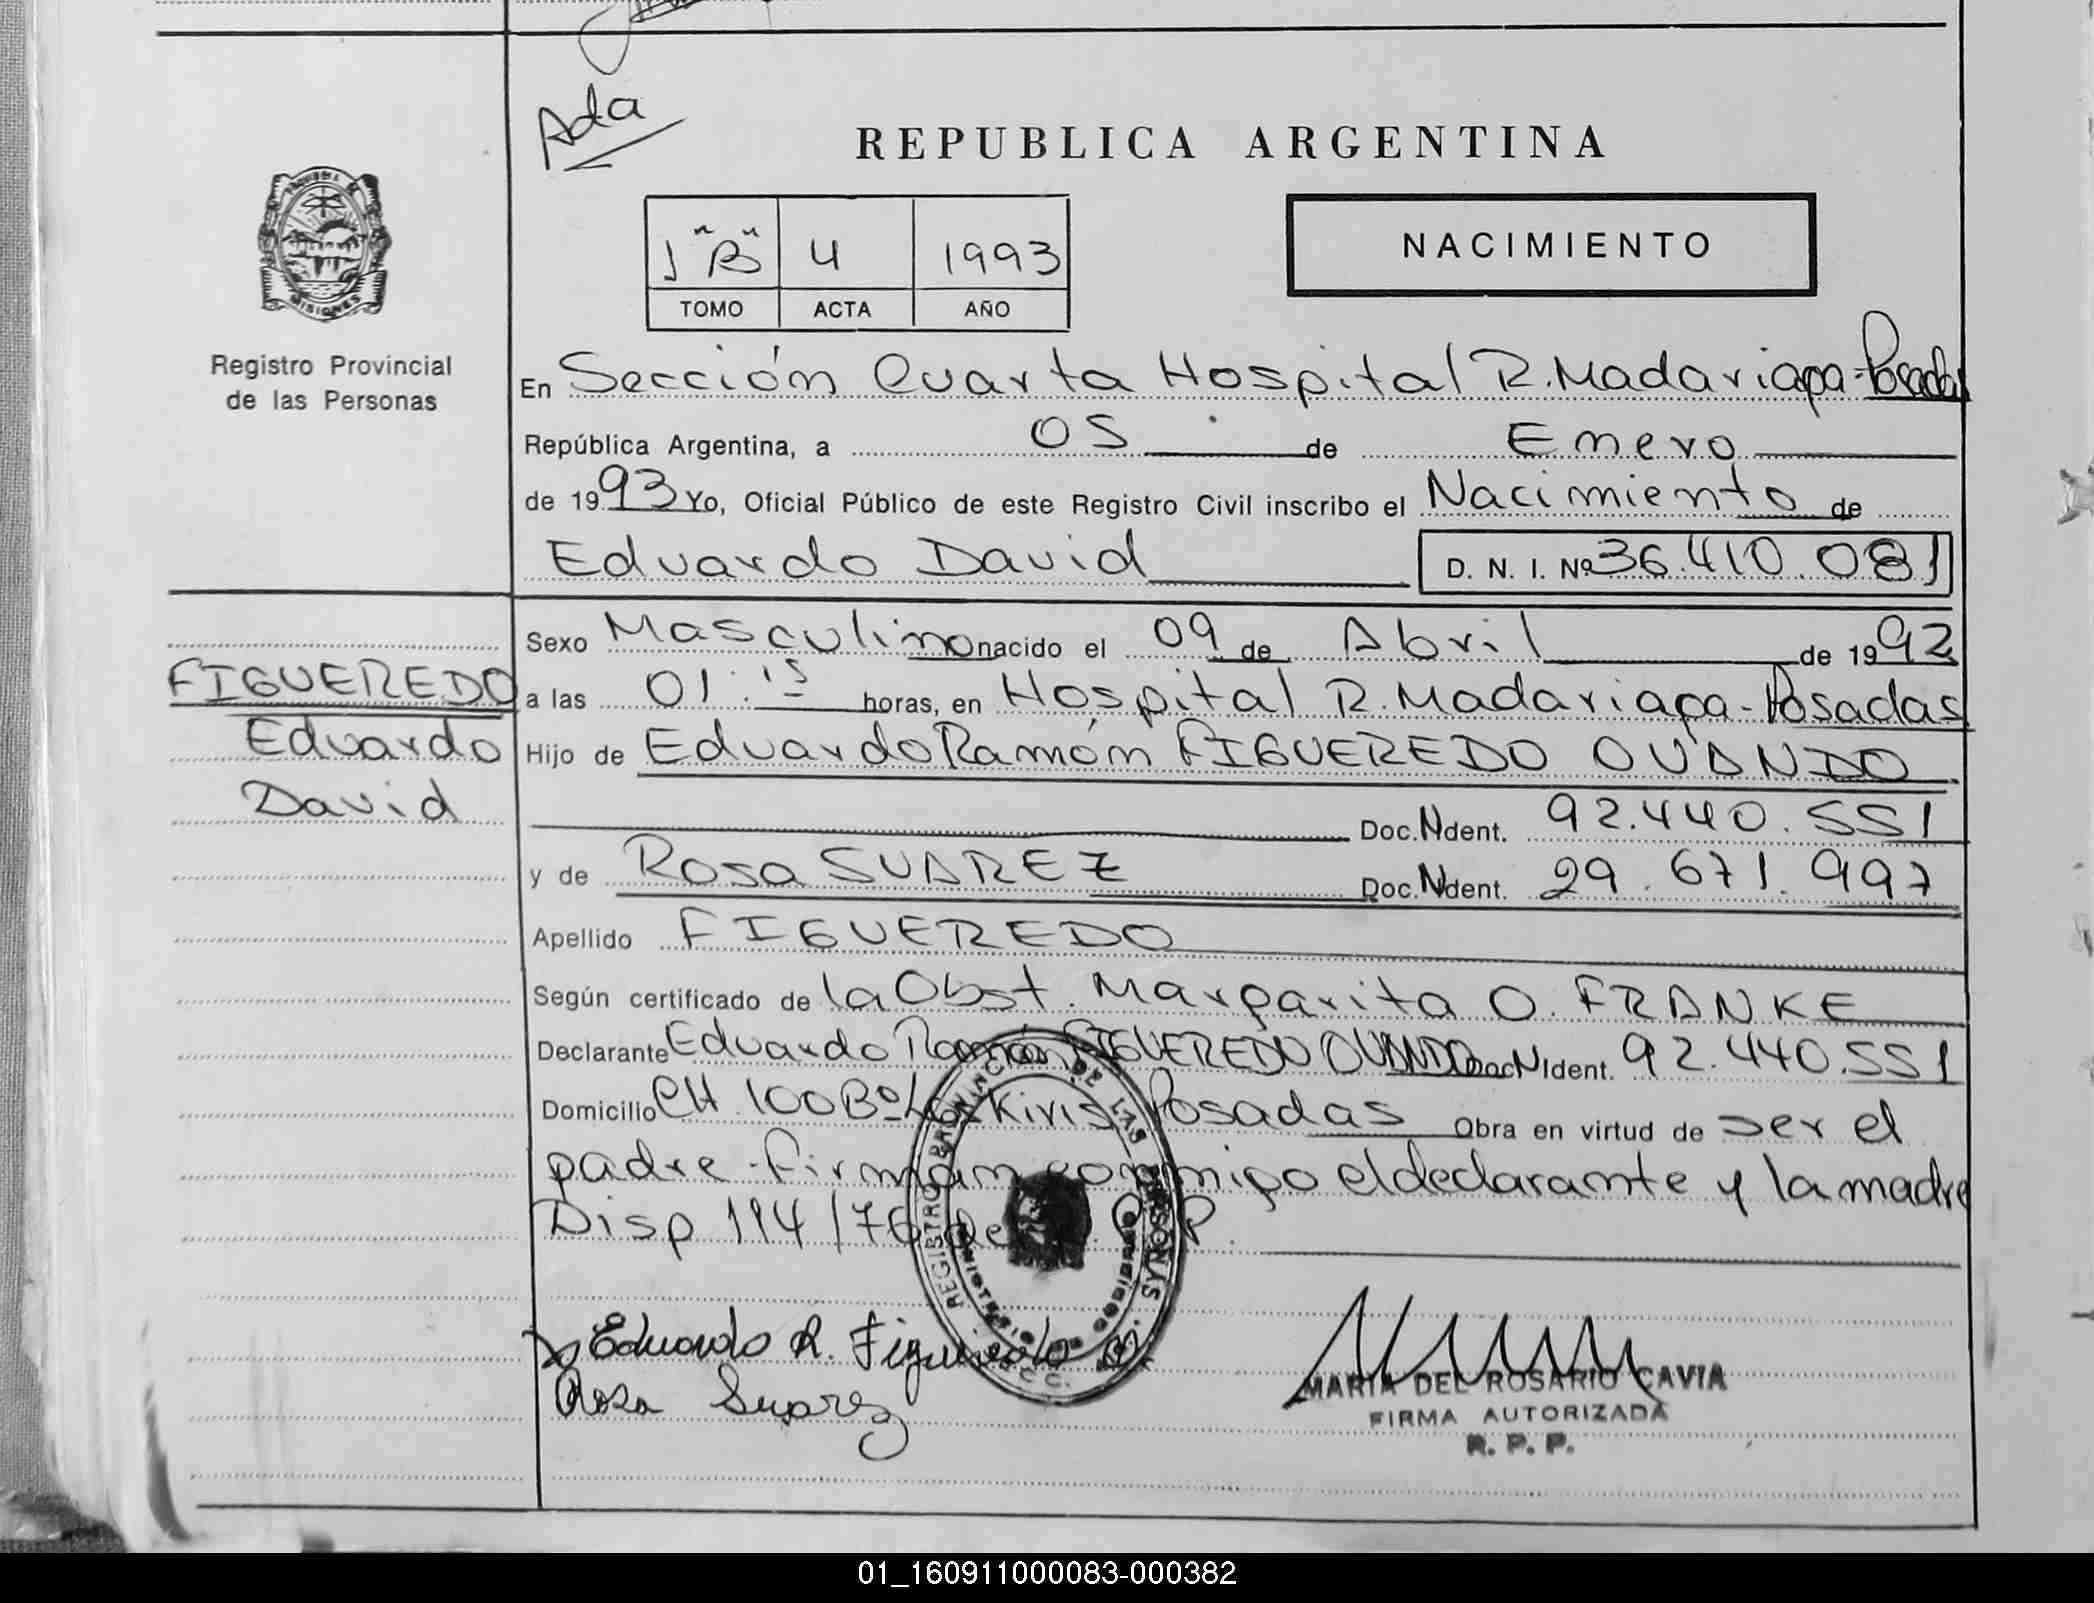 Ada
REPUBLICA ARGENTINA
1 "B" 4 1993
TOMO ACTA AÑO
NACIMIENTO
MISIONES
Registro Provincial
de las Personas
En Sección Cuarta Hospital R. Madariaga - Posadas
República Argentina, a 05 de Enero
de 1993 Yo, Oficial Público de este Registro Civil inscribo el Nacimiento de
Eduardo David D. N. I. Nº 36.410.081
FIGUEREDO
Eduardo
David
Sexo Masculino nacido el 09 de Abril de 1992
a las 01:15 horas, en Hospital R. Madariaga - Posadas
Hijo de Eduardo Ramón FIGUEREDO OVANDO
Doc. Ident. 92.440.551
y de Rosa SUAREZ Doc. Ident. 29.671.997
Apellido FIGUEREDO
Según certificado de la Obst. Margarita O. FRANKE
Declarante Eduardo Ramón FIGUEREDO OVANDO Doc N Ident. 92.440.551
Domicilio CH 100 Bº Kiris Posadas Obra en virtud de ser el
padre - firman conmigo el declarante y la madre
Disp 114/76 de P.
REGISTRO PROVINCIAL DE LAS PERSONAS
Eduardo R. Figueredo O.
Rosa Suarez
MARIA DEL ROSARIO CAVIA
FIRMA AUTORIZADA
R. P. P.
01_160911000083-000382